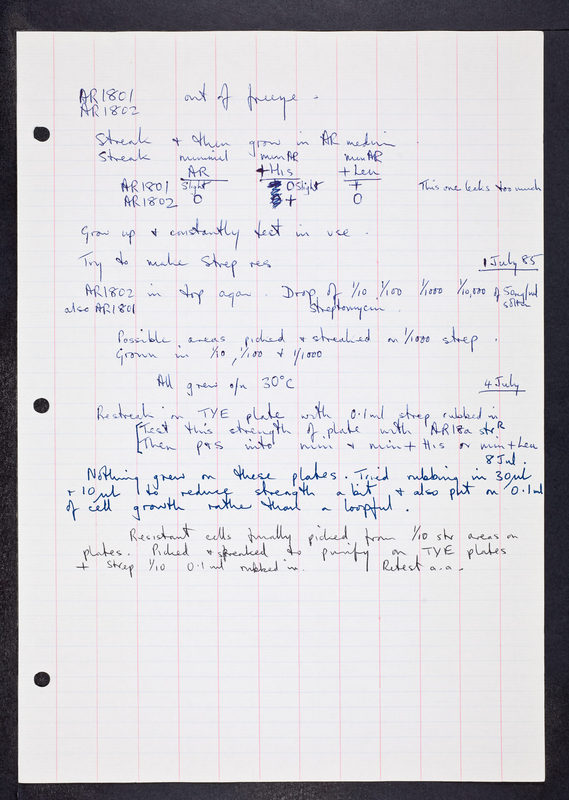 AR1801 out of freeze.
AR1802
Streak & then grow in AR medium.
Streak minimal minAR minAR
AR +His +Leu
AR1801 Slight 0 Slight + This one leaks too much
AR1802 0 + 0
Grow up & constantly test in use.
Try to make Strep res
1 July 85
AR1802 in top agar. Drop of 1/10 1/100 1/1000 1/10,000 of 50mg/ml
also AR1801 Streptomycin. soltn
Possible areas picked & streaked on 1/1000 strep.
Grown in 1/10, 1/100 & 1/1000
All grew o/n 30°C
4 July
Restreak on TYE plate with 0.1ml strep rubbed in
[Test this strength of plate with AR18a strR
[Then p&s into mini & min+His or min+Leu
8 Jul.
Nothing grew on these plates. Tried rubbing in 30µl
+ 10µl to reduce strength a bit & also put on 0.1ml
of cell growth rather than a loopful.
Resistant cells finally picked from 1/10 str areas on
plates. Picked & streaked to purify on TYE plates
+ Strep 1/10 0.1ml rubbed in. Retest a.a.